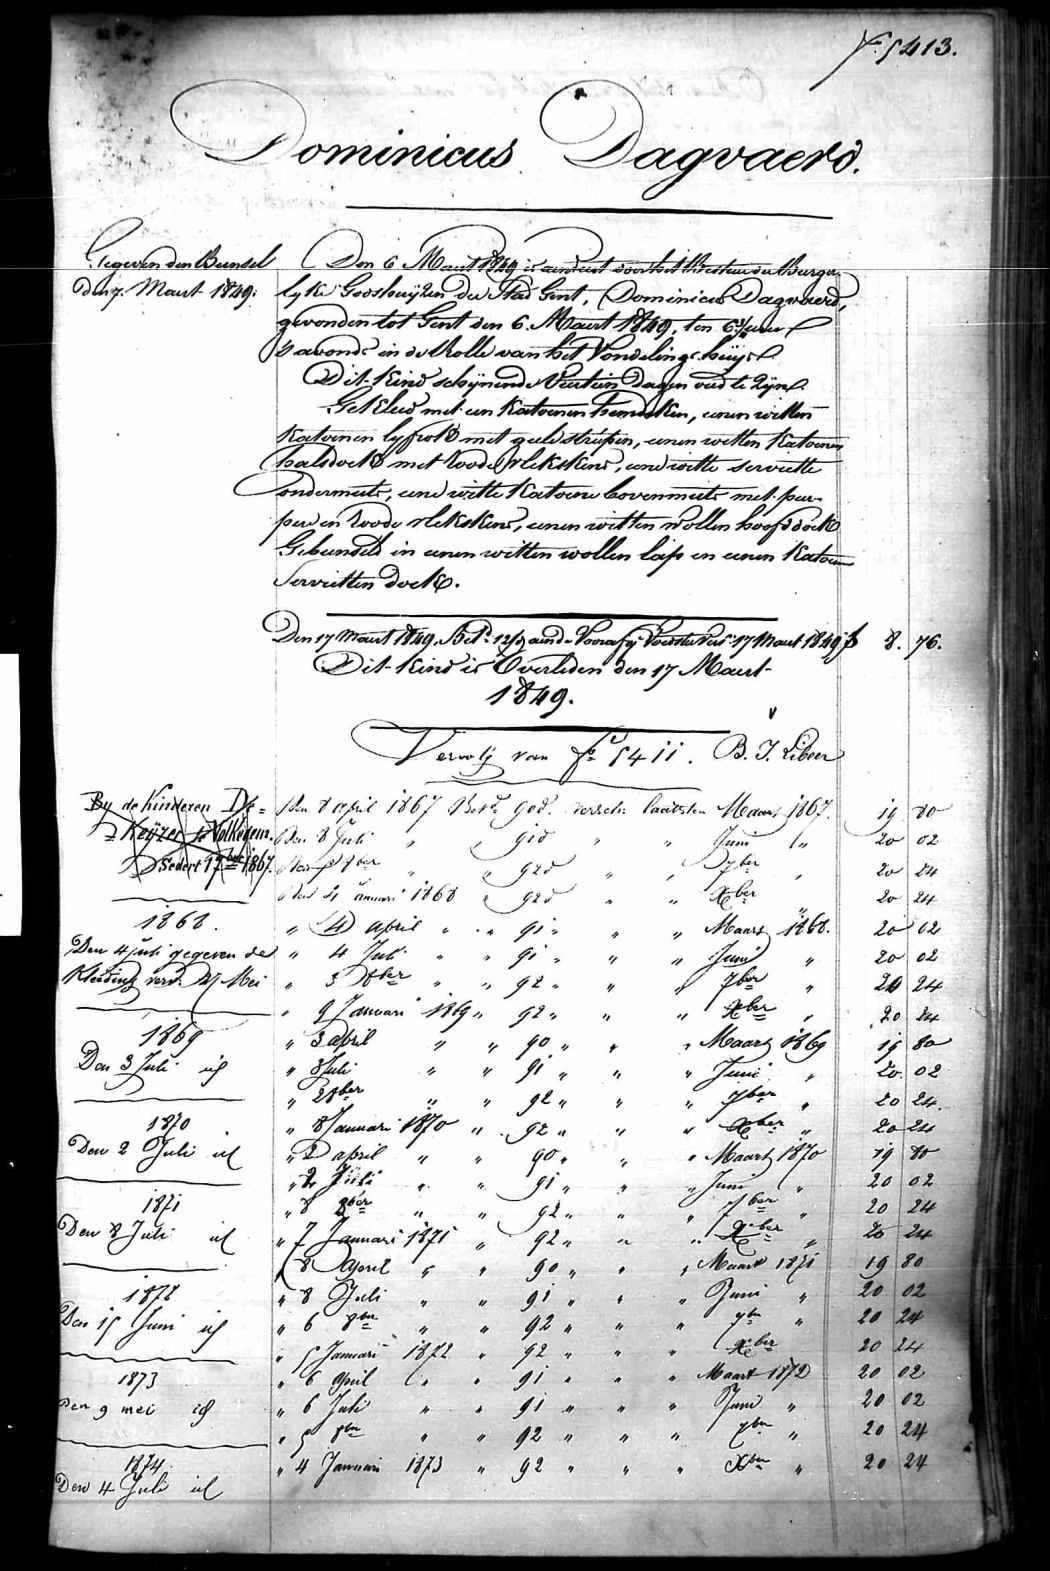 F° 5413.
Dominicus Dagvaerd.
Gegeven den Bunsel
den 7. Maart 1849.
Den 6 Maart 1849 is aenveert door het Bestuur der Burger-
lyke Godshuyzen der Stad Gent, Dominicus Dagvaerd,
gevonden tot Gent den 6. Maart 1849, ten 6 3/4 uren
's avonds in de Rolle van het Vondelingshuys.
Dit Kind schynende Veertien dagen oud te Zyn.
Gekleed met een Katoenen hemdeken, eenen witten
Katoenen lyfrok met geele striepen, eenen witten Katoenen
halsdoek met Roode vlekskens, eene witte serviette
ondermuts, eene witte Katoene bovenmuts met pur-
pere en Roode vlekskens, eenen witten wollen hoofddoek
Gebunseld in eenen witten wollen lap en eenen Katoenen
Servietten doek.
Den 17 Maart 1849. Bet. 12/ aende Voedster 17 Maart 1849 f 8. 76.
Dit Kind is Overleden den 17 Maert
1849.
Vervolg van f° 5411. B. J. Libeer
By de Kinderen De
Keyzer te Volkegem.
Sedert 17 1867.
Den 8 april 1867 Bet. 90d. versch. laatsten Maart 1867. 19 80
Den 8 Juli " " 91d " " Juni " 20 02
Den 7ber " " 92d " " 7ber " 20 24
Den 4 Januari 1868 " 92d " " Xber " 20 24
1868.
" 4 april " " 91 " " " Maart 1868. 20 02
Den 4 juli gegeven de
Kleeding verv. Mei
" 4 Juli " " 91 " " " Juni " 20 02
" 3 8ber " " 92 " " " 7ber " 20 24
" 9 Januari 1869 " 92 " " " Xber " 20 24
1869
" 3 april " " 90 " " " Maart 1869 19 80
Den 3 Juli id
" 8 Juli " " 91 " " " Juni " 20 02
" 2 8ber " " 92 " " " 7ber " 20 24
1870
" 8 Januari 1870 " 92 " " " Xber " 20 24
Den 2 Juli id
" 2 april " " 90 " " " Maart 1870 19 80
" 2 Juli " " 91 " " " Juni " 20 02
1871
" 8 8ber " " 92 " " " 7ber " 20 24
Den 8 Juli id
" 7 Januari 1871 " 92 " " " Xber " 20 24
" 8 April " " 90 " " " Maart 1871 19 80
1872
" 8 Juli " " 91 " " " Juni " 20 02
Den 15 Juni id
" 6 8ber " " 92 " " " 7ber " 20 24
" 5 Januari 1872 " 92 " " " Xber 20 24
1873
" 6 April " " 91 " " " Maart 1872 20 02
Den 9 mei id
" 6 Juli " " 91 " " " Juni " 20 02
" 5 8ber " " 92 " " " 7ber " 20 24
1874.
" 4 Januari 1873 " 92 " " " Xber " 20 24
Den 4 Juli id